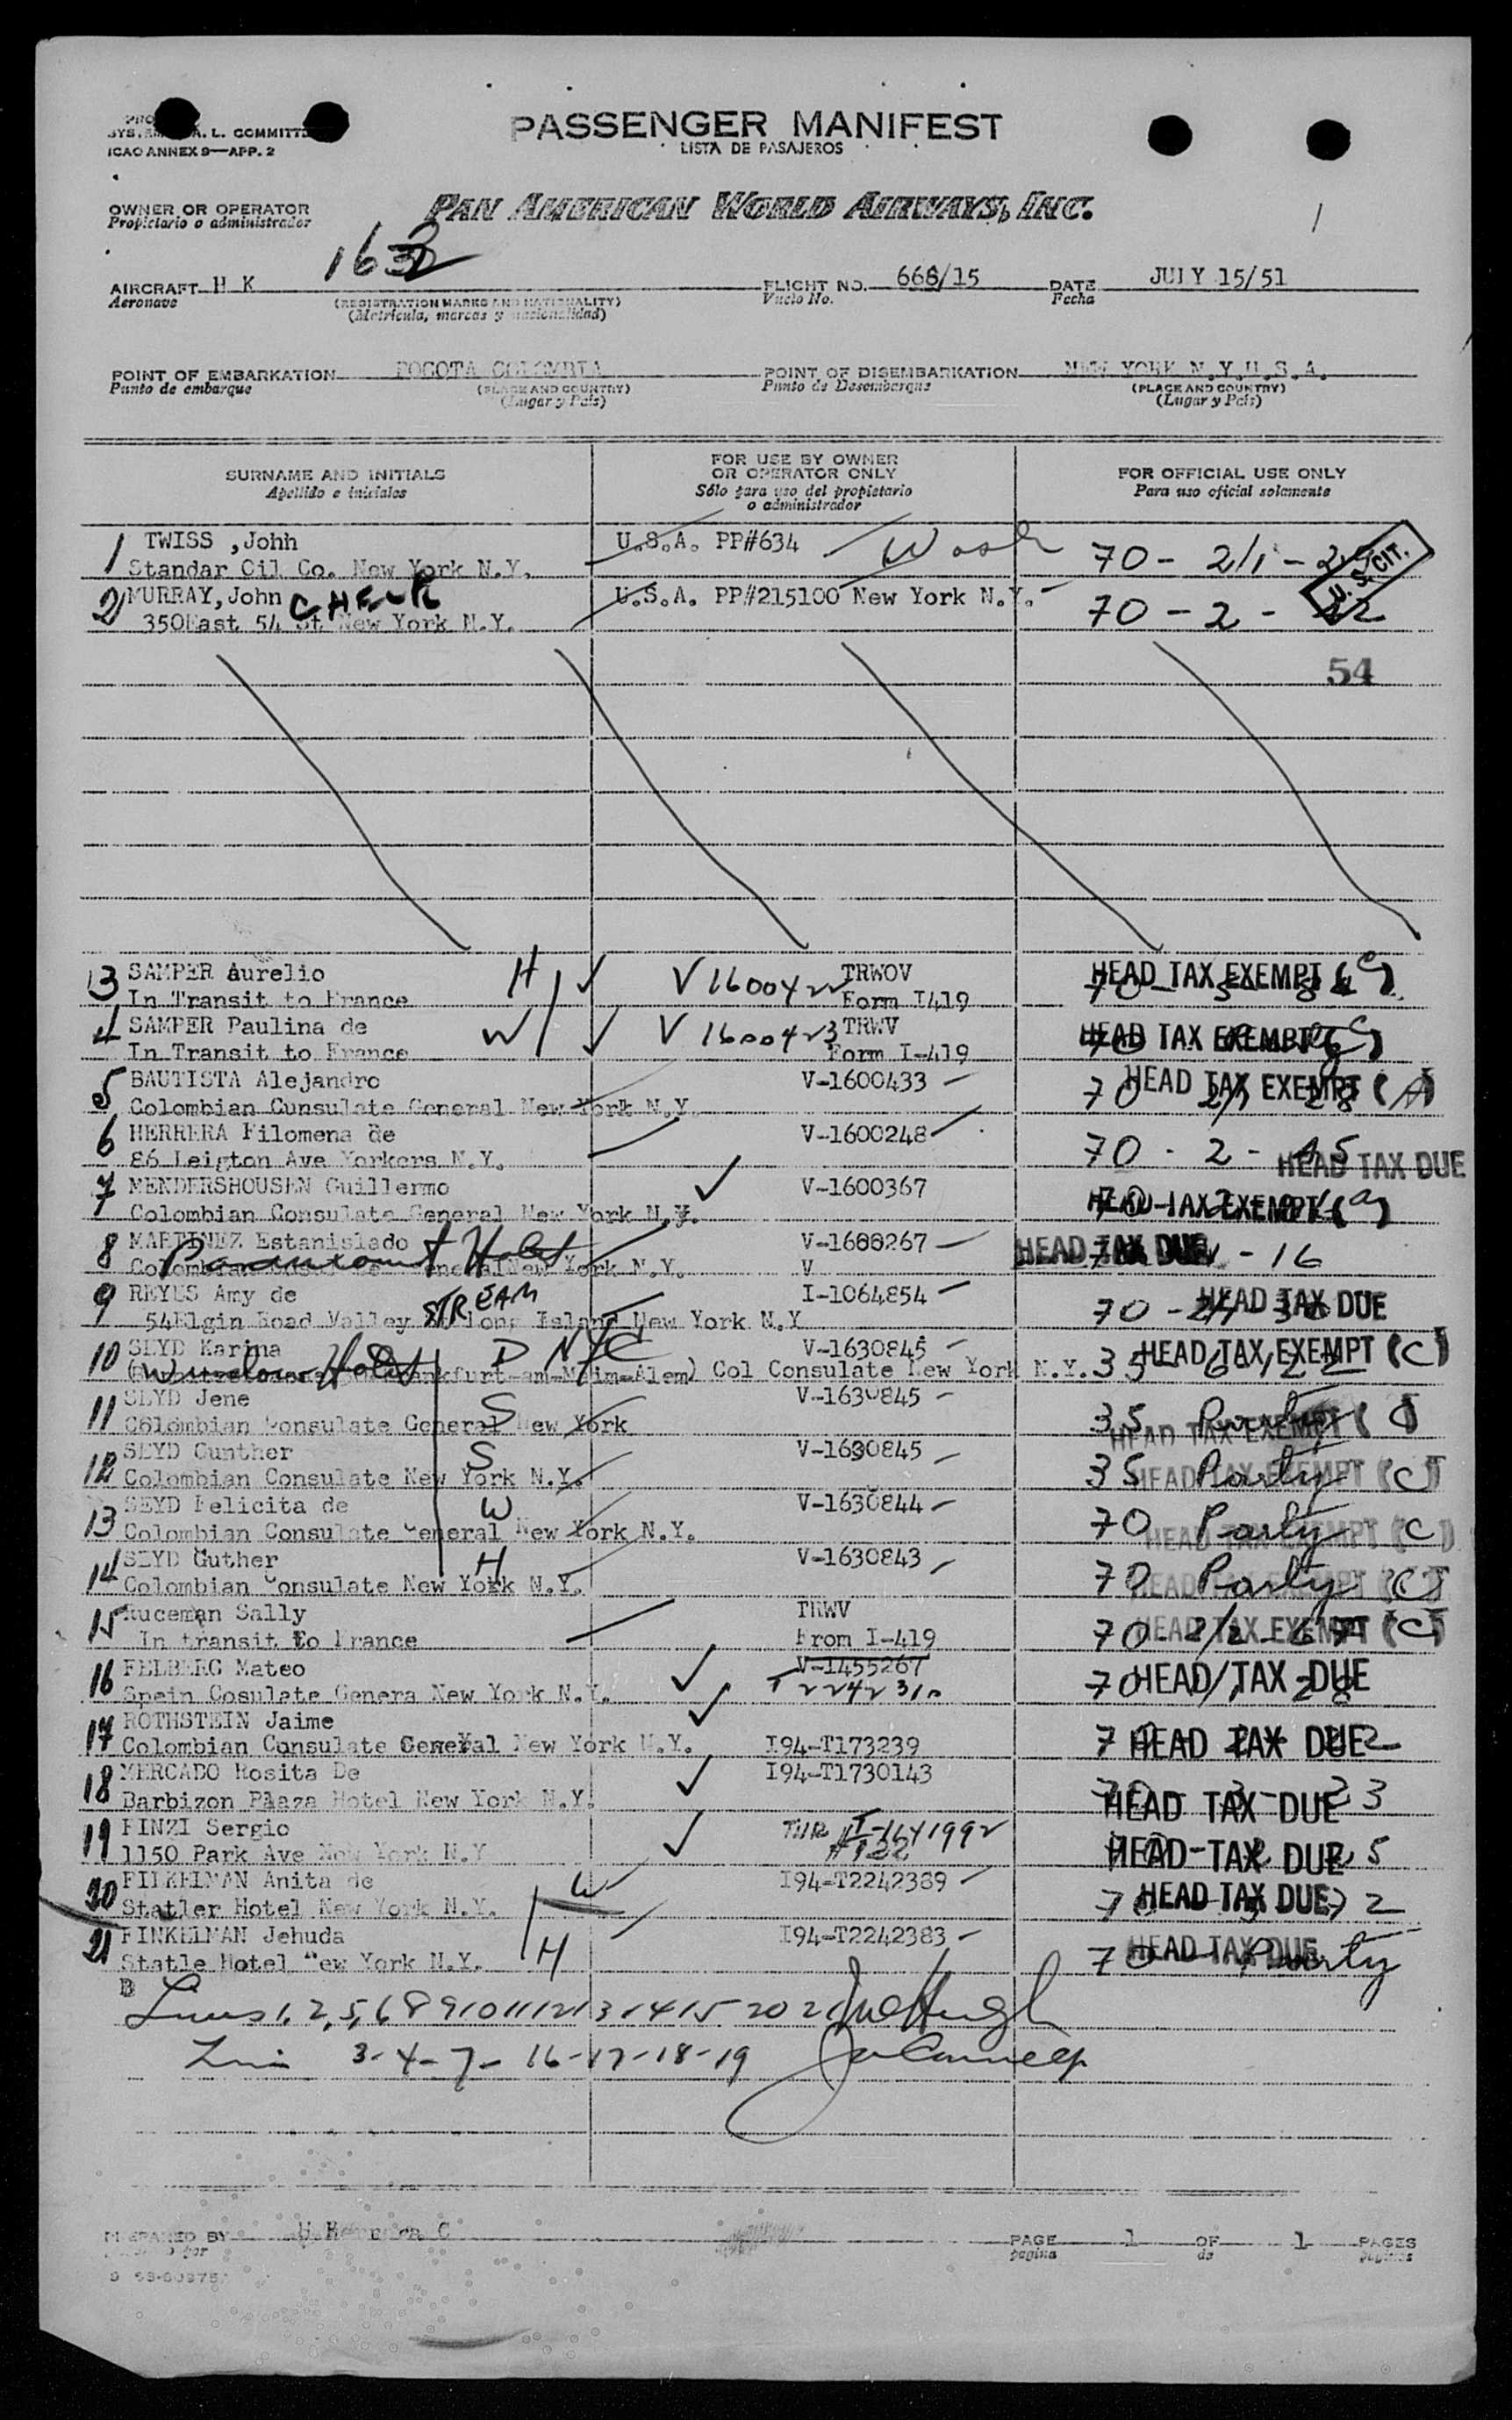 A. L. COMMITT
ICAO ANNEX 9—APP. 2
PASSENGER MANIFEST
LISTA DE PASAJEROS
OWNER OR OPERATOR
Propietario o administrador
PAN AMERICAN WORLD AIRWAYS, INC.
1632
AIRCRAFT H K
Aeronave
(REGISTRATION MARKS AND NATIONALITY)
(Matrícula, marcas y nacionalidad)
FLIGHT NO. 668/15
Vuelo No.
DATE JULY 15/51
Fecha
POINT OF EMBARKATION BOGOTA COLOMBIA
Punto de embarque
(PLACE AND COUNTRY)
(Lugar y País)
POINT OF DISEMBARKATION NEW YORK N.Y.U.S.A.
Punto de Desembarque
(PLACE AND COUNTRY)
(Lugar y País)
SURNAME AND INITIALS
Apellido e iniciales
FOR USE BY OWNER
OR OPERATOR ONLY
Sólo para uso del propietario
o administrador
FOR OFFICIAL USE ONLY
Para uso oficial solamente
1 TWISS ,Johh U.S.A. PP#634 Wash 70 - 2/1 -
Standar Oil Co. New York N.Y.
U.S. CIT.
2 MURRAY, John U.S.A. PP#215100 New York N.Y. 70 - 2 - 22
350East 54 St New York N.Y.
54
3 SAMPER Aurelio H V1600422 TRWOV HEAD TAX EXEMPT (C)
In Transit to France Form I419
4 SAMPER Paulina de W V1600423 TRWV HEAD TAX EXEMPT (C)
In Transit to France Form I-419
5 BAUTISTA Alejandro V-1600433 70 HEAD TAX EXEMPT (A)
Colombian Cunsulate General New York N.Y.
6 HERRERA Filomena de V-1600248 70 - 2 - 45
86 Leigton Ave Yorkers N.Y. HEAD TAX DUE
7 MENDERSHOUSEN Guillermo V-1600367
Colombian Consulate General New York N.Y. HEAD TAX EXEMPT (a)
8 MARTINEZ Estanislado V-1600267 HEAD TAX DUE - 16
Paramount Hotel New York N.Y. V
9 REYES Amy de I-1064854 HEAD TAX DUE
54Elgin Road Valley STREAM Long Island New York N.Y 70
10 SEYD Karina D NYC V-1630845 HEAD TAX EXEMPT (C)
Hotel Frankfurt-am-Maim-Alem) Col Consulate New York N.Y. 35
11 SEYD Jene S V-1630845 35 Party
Colombian Consulate General New York HEAD TAX EXEMPT (C)
12 SEYD Gunther S V-1630845 35 Party
Colombian Consulate New York N.Y. HEAD TAX EXEMPT (C)
13 SEYD Felicita de W V-1630844 70 Party
Colombian Consulate General New York N.Y. HEAD TAX EXEMPT (C)
14 SEYD Guther H V-1630843 70 Party
Colombian Consulate New York N.Y. HEAD TAX EXEMPT (C)
15 Ruceman Sally TRWV
In transit to France From I-419 70 HEAD TAX EXEMPT (C)
16 FELBERG Mateo V-1455267 70 HEAD TAX DUE
Spein Cosulate Genera New York N.Y.
17 ROTHSTEIN Jaime
Colombian Consulate General New York N.Y. I94-T173239 HEAD TAX DUE
18 MERCADO Rosita De I94-T1730143
Barbizon Plaza Hotel New York N.Y. HEAD TAX DUE
19 FINZI Sergio
1150 Park Ave New York N.Y HEAD TAX DUE
20 FINKELMAN Anita de W I94-T2242389 HEAD TAX DUE
Statler Hotel New York N.Y.
21 FINKELMAN Jehuda I94-T2242383 HEAD TAX DUE
Statle Hotel New York N.Y. H 70 Party
Lines 1, 2, 5, 6 8 9 10 11 12 13 14 15 20 21
3-4-7- 16-17-18-19
PREPARED BY
PAGE 1 OF 1 PAGES
pagina de páginas